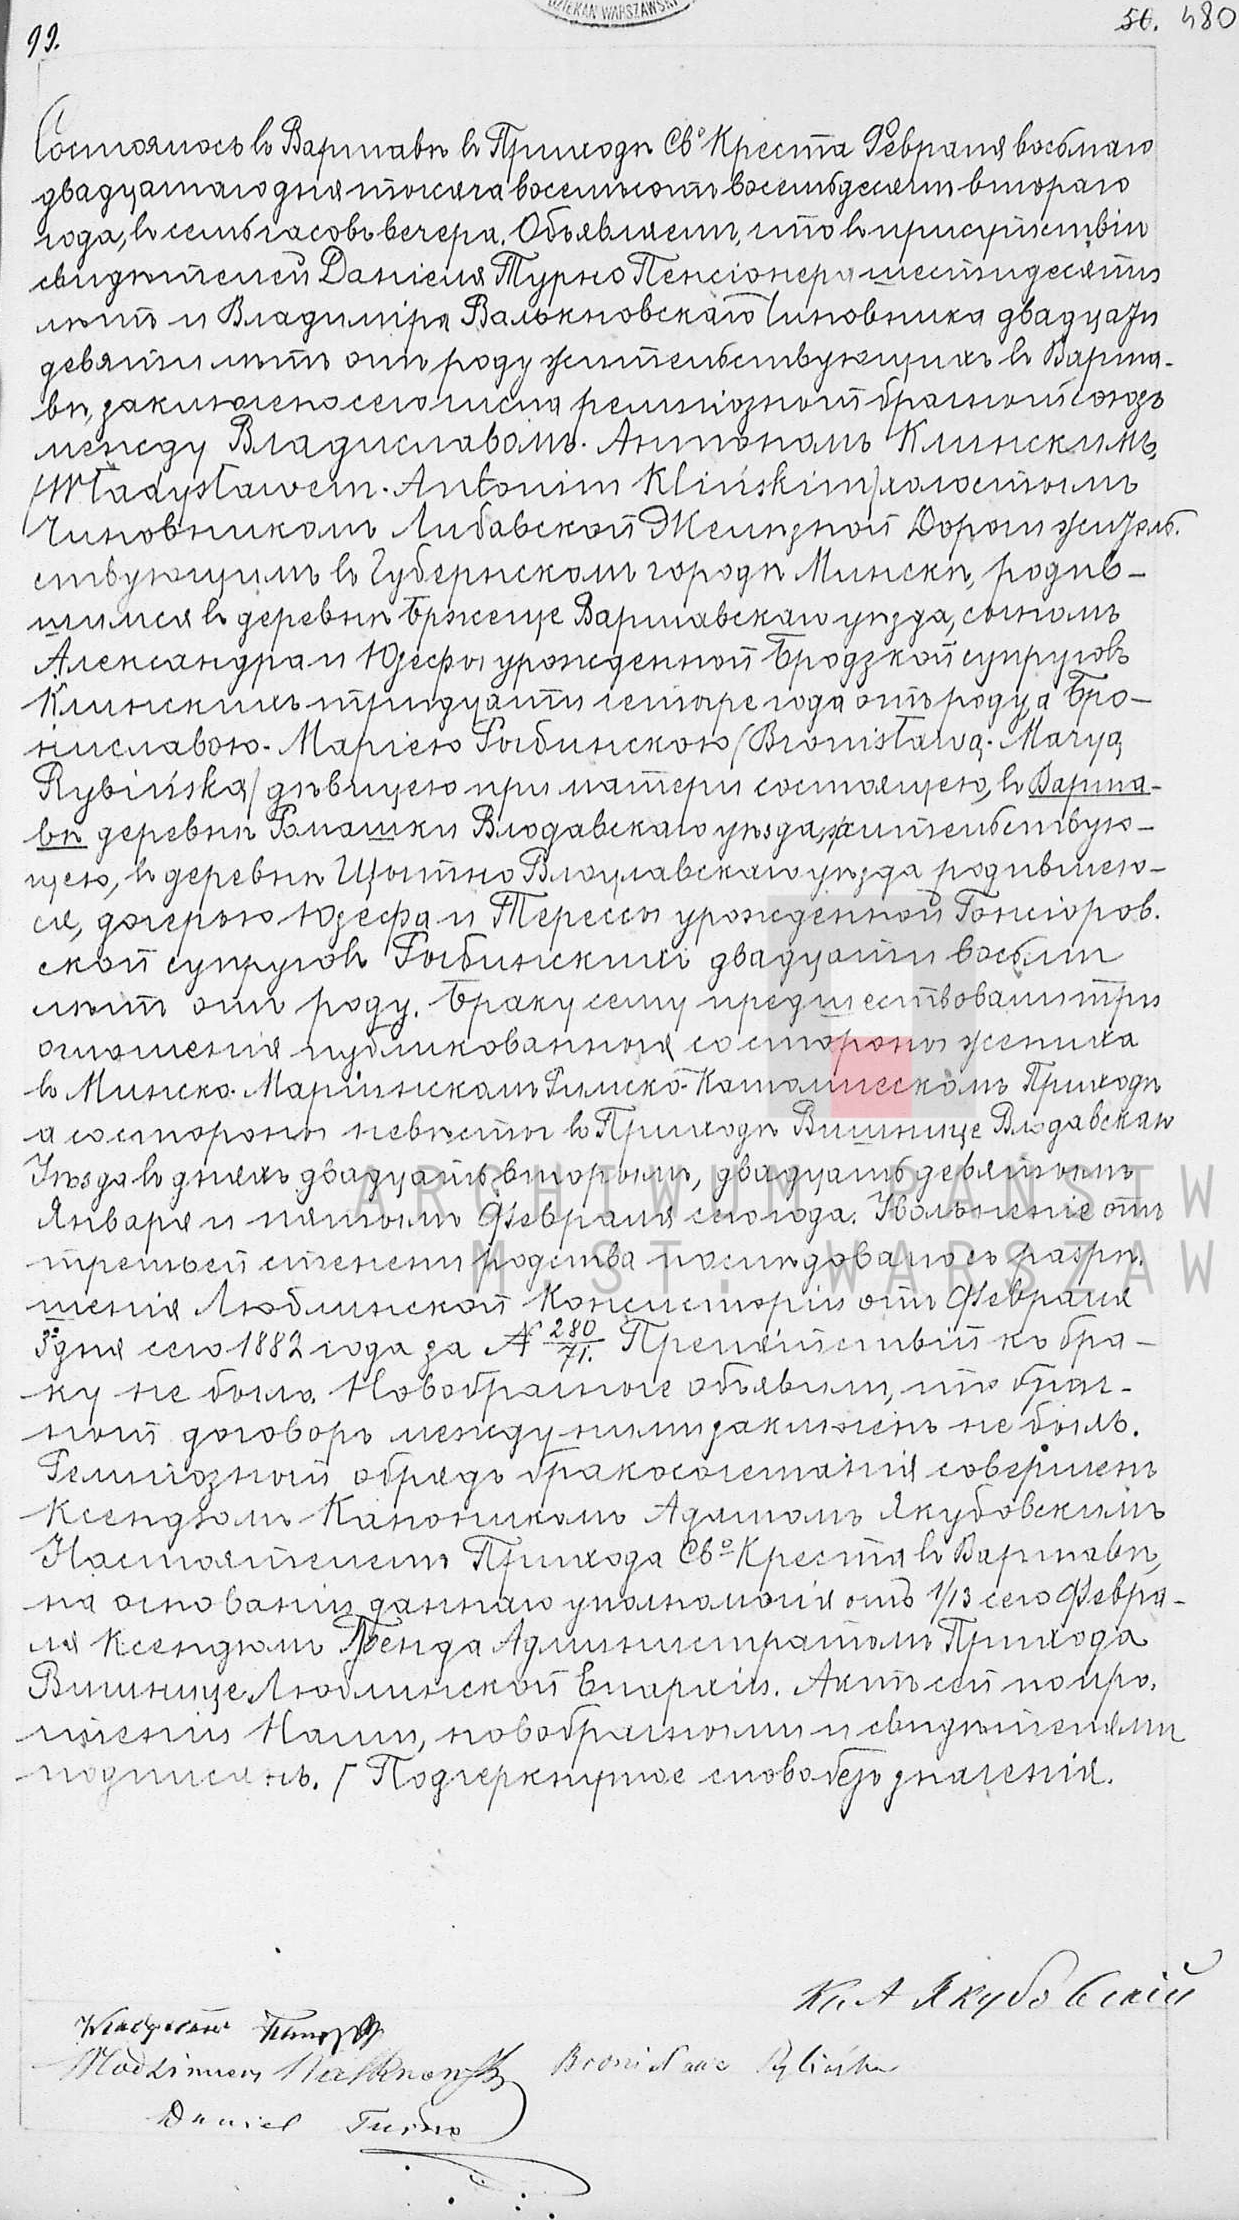 DZIEKAN WARSZAWSKI
99.
56. 480
Состоялось въ Варшавѣ въ Приходѣ Св͏о Креста Февраля восьмаго
двадцатаго дня тысяча восемьсотъ восемьдесятъ втораго
года, въ семь часовъ вечера. Объявляемъ, что въ присутствіи
свидѣтелей Даніеля Турно Пенсіонера шестидесяти
лѣтъ и Владиміра Валькновскаго Чиновника двадцати
девяти лѣтъ отъ роду жительствующихъ въ Варша-
вѣ, заключенъ сего числа религіозный брачный союзъ
между Владиславомъ-Антономъ Клинскимъ,
/Władysławem-Antonim Klińskim/ холостымъ
Чиновникомъ Либавской Желѣзной Дороги житель-
ствующимъ въ Губернскомъ городѣ Минскѣ, родив-
шимся въ деревнѣ Бржеще Варшавскаго уѣзда, сыномъ
Александра и Юзефы урожденной Бродзкой супруговъ
Клинскихъ тридцати четыре года отъ роду, а Бро-
ниславою-Маріею Рыбинскою /Bronisławą-Maryą
Rybińską/ дѣвицею при матери состоящею, въ Варша-
вѣ деревнѣ Ромашки Влодавскаго уѣзда, жительствую-
щею, въ деревнѣ Щытно Влоцлавскаго уѣзда родившею-
ся, дочерью Юзефа и Терессы урожденной Гонсіоров-
ской супруговъ Рыбинскихъ двадцати восьми
лѣтъ отъ роду. Браку сему предшествовали три
оглашенія публикованныя со стороны жениха
въ Минско-Маріинскомъ Римско-Католическомъ Приходѣ
а со стороны невѣсты въ Приходѣ Вишнице Влодавскаго
Уѣзда въ дняхъ двадцать вторымъ, двадцать девятымъ
Января и пятымъ Февраля сего года. Увольненіе отъ
третьей степени родства послѣдовало съ разрѣ-
шенія Люблинской Консисторіи отъ Февраля
3го дня сего 1882 года за № 280/71. Препятствій къ бра-
ку не было. Новобрачные объявили, что брач-
ный договоръ между ними заключенъ не былъ.
Религіозный обрядъ бракосочетанія совершенъ
Ксендзомъ Каноникомъ Адамомъ Якубовскимъ
Настоятелемъ Прихода Св͏о Креста въ Варшавѣ,
на основаніи даннаго уполномочія отъ 1/13 сего Февра-
ля Ксендзомъ Администраторомъ Прихода
Вишнице Люблинской Епархіи. Актъ сей по про-
чтеніи Нами, новобрачными и свидѣтелями
подписанъ. / Подчеркнутое слово безъ значенія.
Кс. А Якубовскій
Władysław Kliński
Włodzimierz Bronisława Rybińska
Daniel Turno
ARCHIWUM PAŃSTW
M.ST. WARSZAW